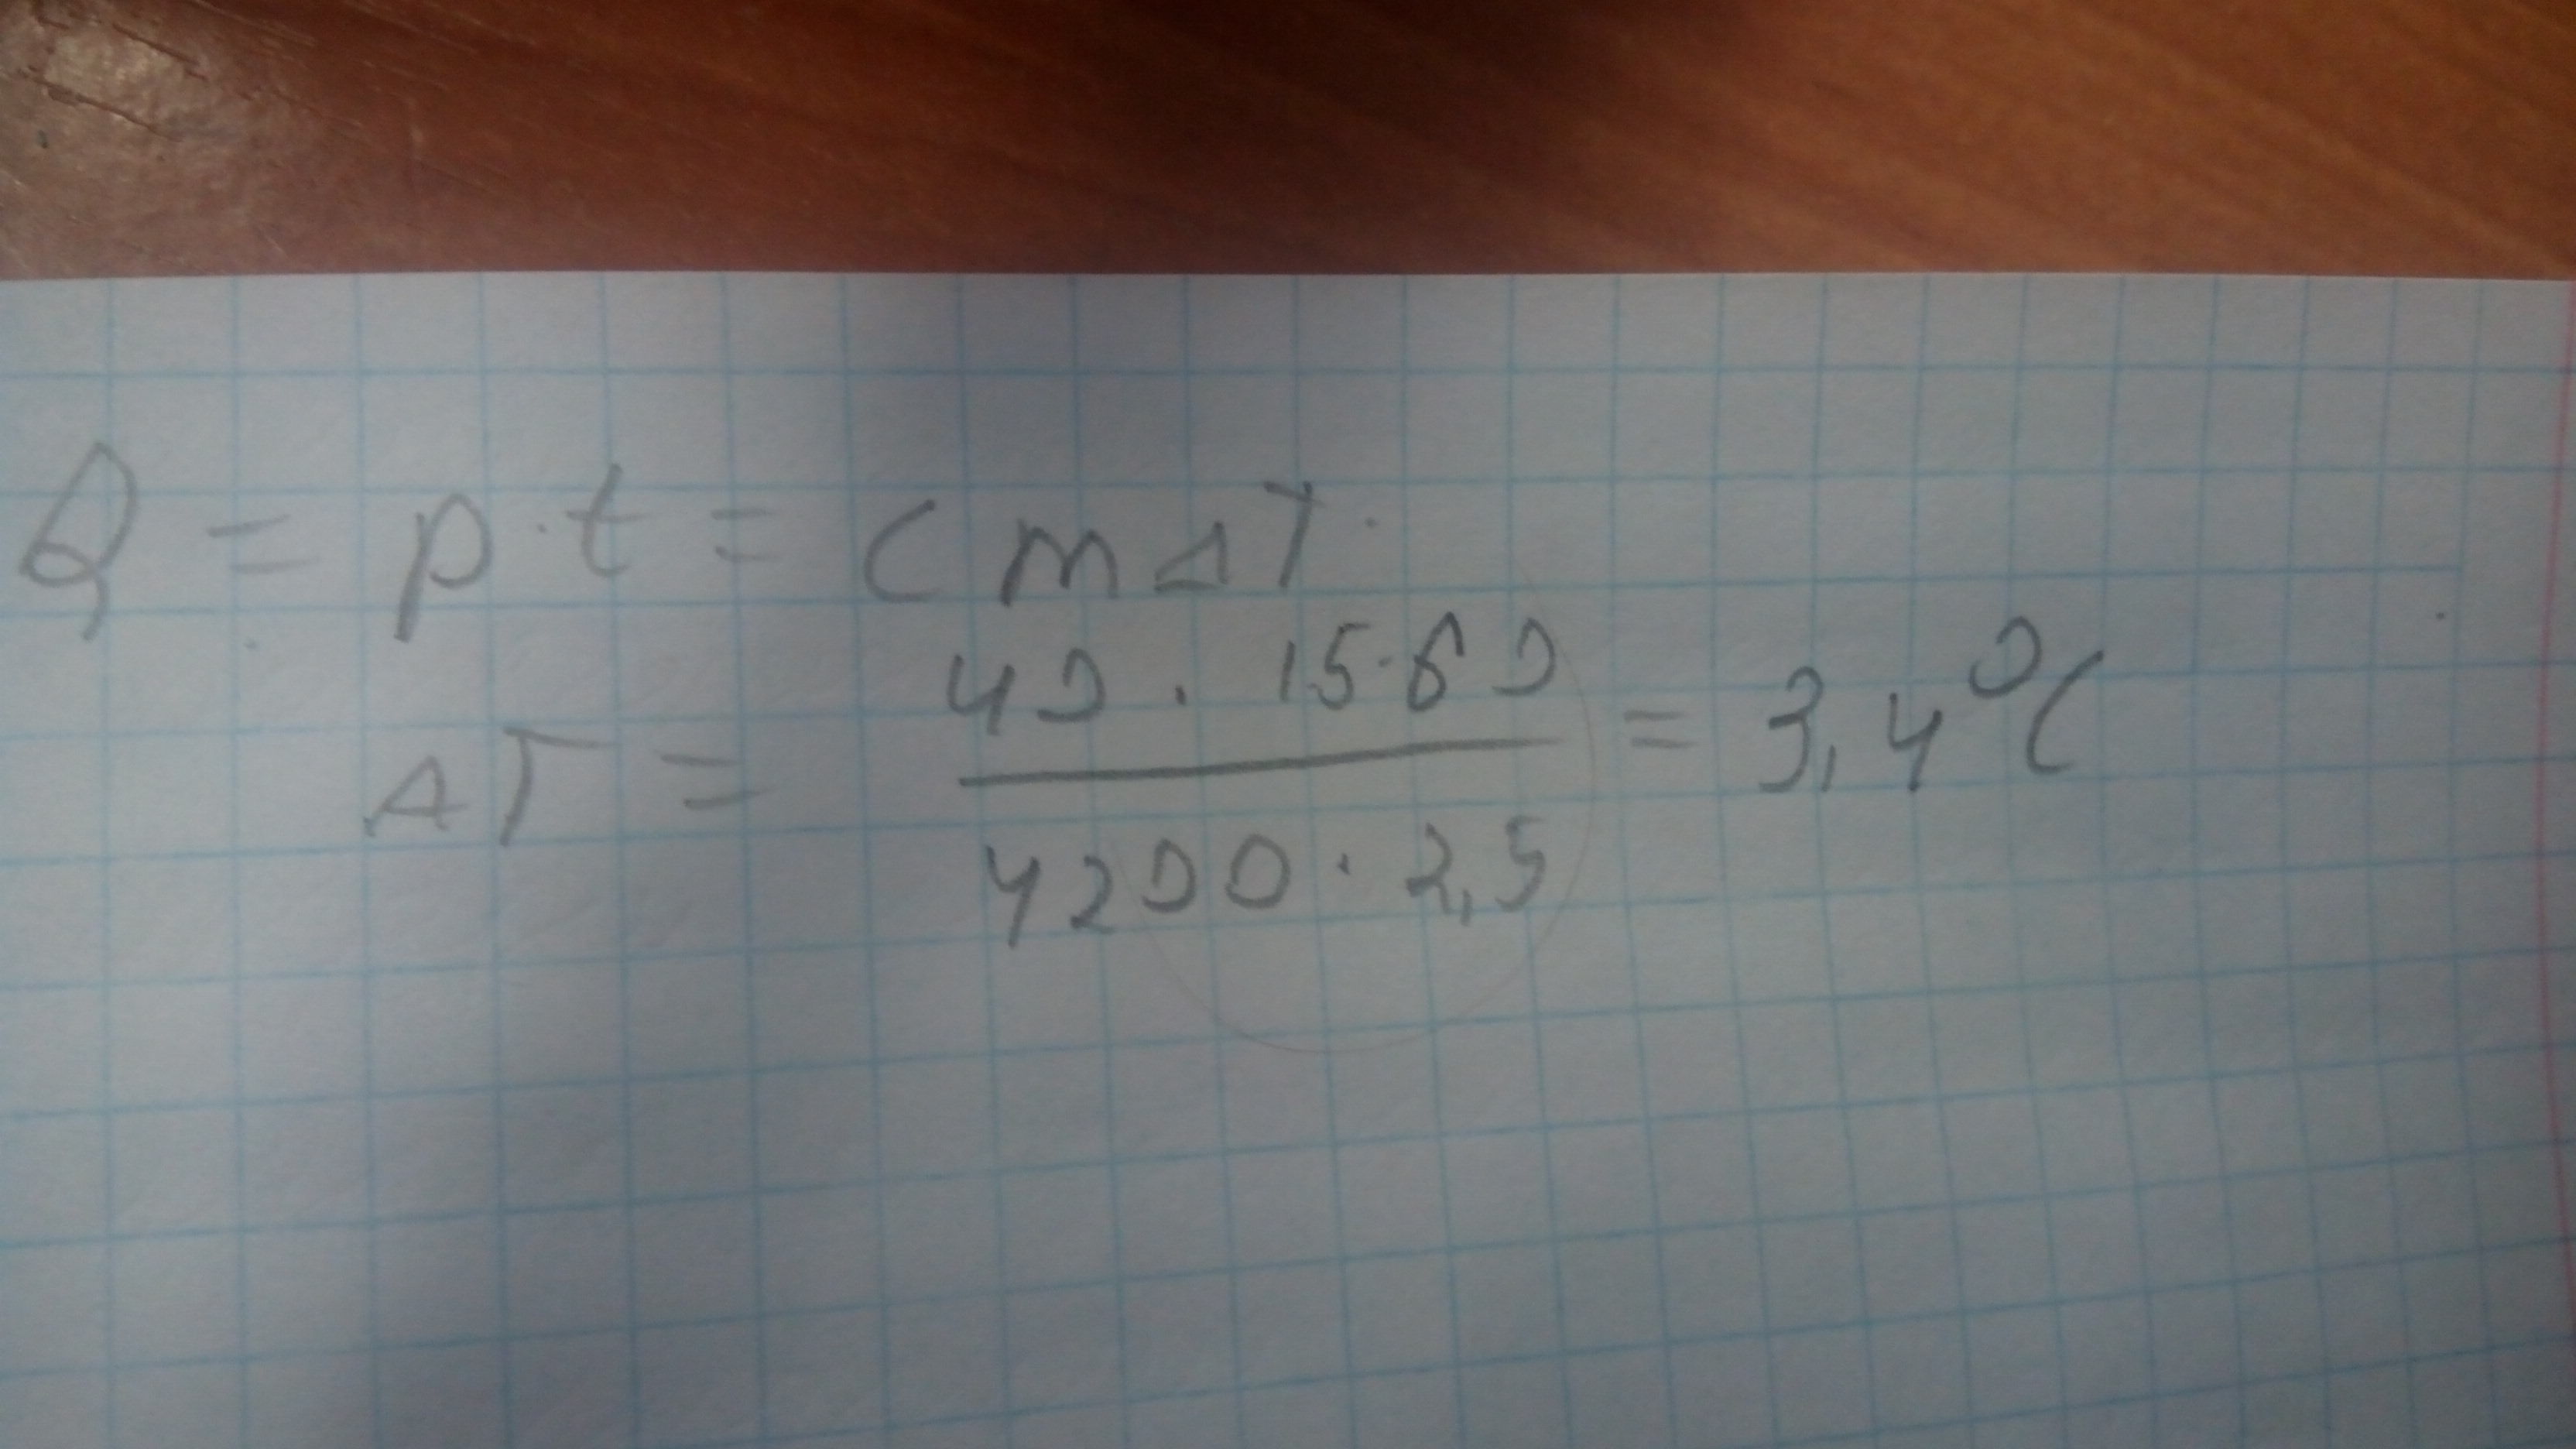 Q = p·t = cmΔT
ΔT = 40 · 15·60 / 4200 · 2,5 = 3,4 °C